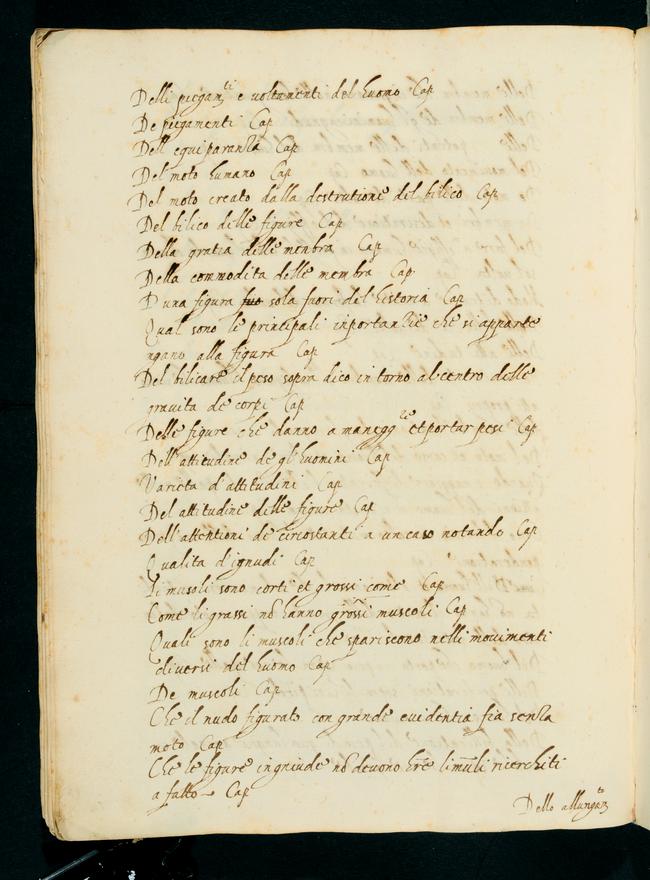 Delli piegam.ti e voltamenti del huomo Cap
De piegamenti Cap
Dell equiparanza Cap
Del moto humano Cap
Del moto creato dalla destrutione del bilico Cap
Del bilico delle figure Cap
Della gratia delle menbra Cap
Della commodita delle membra Cap
D una figura fuo sola fuori del historia Cap
Qual sono le principali inportantie che si apparte
ngano alla figura Cap
Del bilicare il peso sopra dico in torno al centro delle
gravita de corpi Cap
Delle figure che hanno a manegg.re et portar pesi Cap
Dell'attitudine de gl'huomini Cap
Varieta d'attitudini Cap
Del attitudine delle figure Cap
Dell'attentioni de circostanti a un caso notando Cap
Qualita d'ignudi Cap
Li musoli sono corti et grossi come Cap
Come li grassi nō hanno grossi muscoli Cap
Quali sono li muscoli che spariscono nelli movimenti
diversi del huomo Cap
De muscoli Cap
Che il nudo figurato con grande evidentia sia senza
moto Cap
Che le figure ingniude nō devono hr̄e li mūli ricerchiti
a fatto Cap
Dello allungam.to